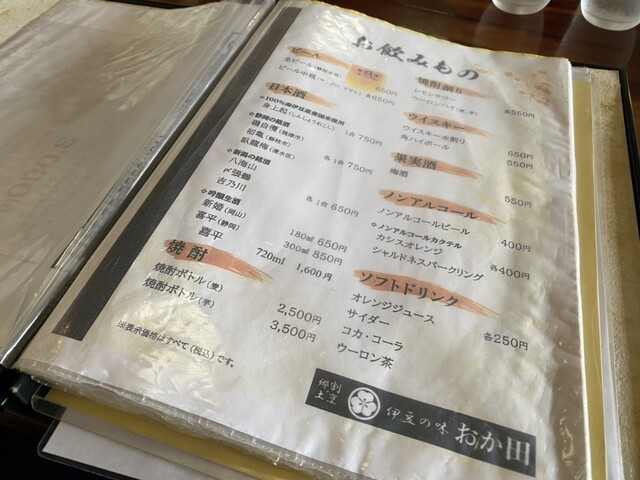 お飲みもの
ビール
生ビール(静岡麦酒) 650円
ビール中瓶(サッポロ、アサヒ) 各650円
日本酒
◇100%南伊豆産愛国米使用
身上起(しんしょうおこし) 1合 750円
◇静岡の銘酒
磯自慢(焼津市)
初亀(藤枝市) 各1合 750円
臥龍梅(清水区)
◇新潟の銘酒
八海山
〆張鶴 各1合 650円
吉乃川
◇吟醸生酒
新婚(岡山) 180ml 650円
喜平(静岡) 300ml 850円
喜平 720ml 1,600円
焼酎
焼酎ボトル(麦) 2,500円
焼酎ボトル(芋) 3,500円
※表示価格はすべて(税込)です。
焼酎割り
レモンサワー
ウーロンハイ(麦・芋) 各550円
ウイスキー
ウイスキー水割り 650円
角ハイボール 550円
果実酒
梅酒 550円
ノンアルコール
ノンアルコールビール 400円
◇ノンアルコールカクテル
カシスオレンジ 各400円
シャルドネスパークリング
ソフトドリンク
オレンジジュース
サイダー 各250円
コカ・コーラ
ウーロン茶
郷土割烹 伊豆の味 おか田